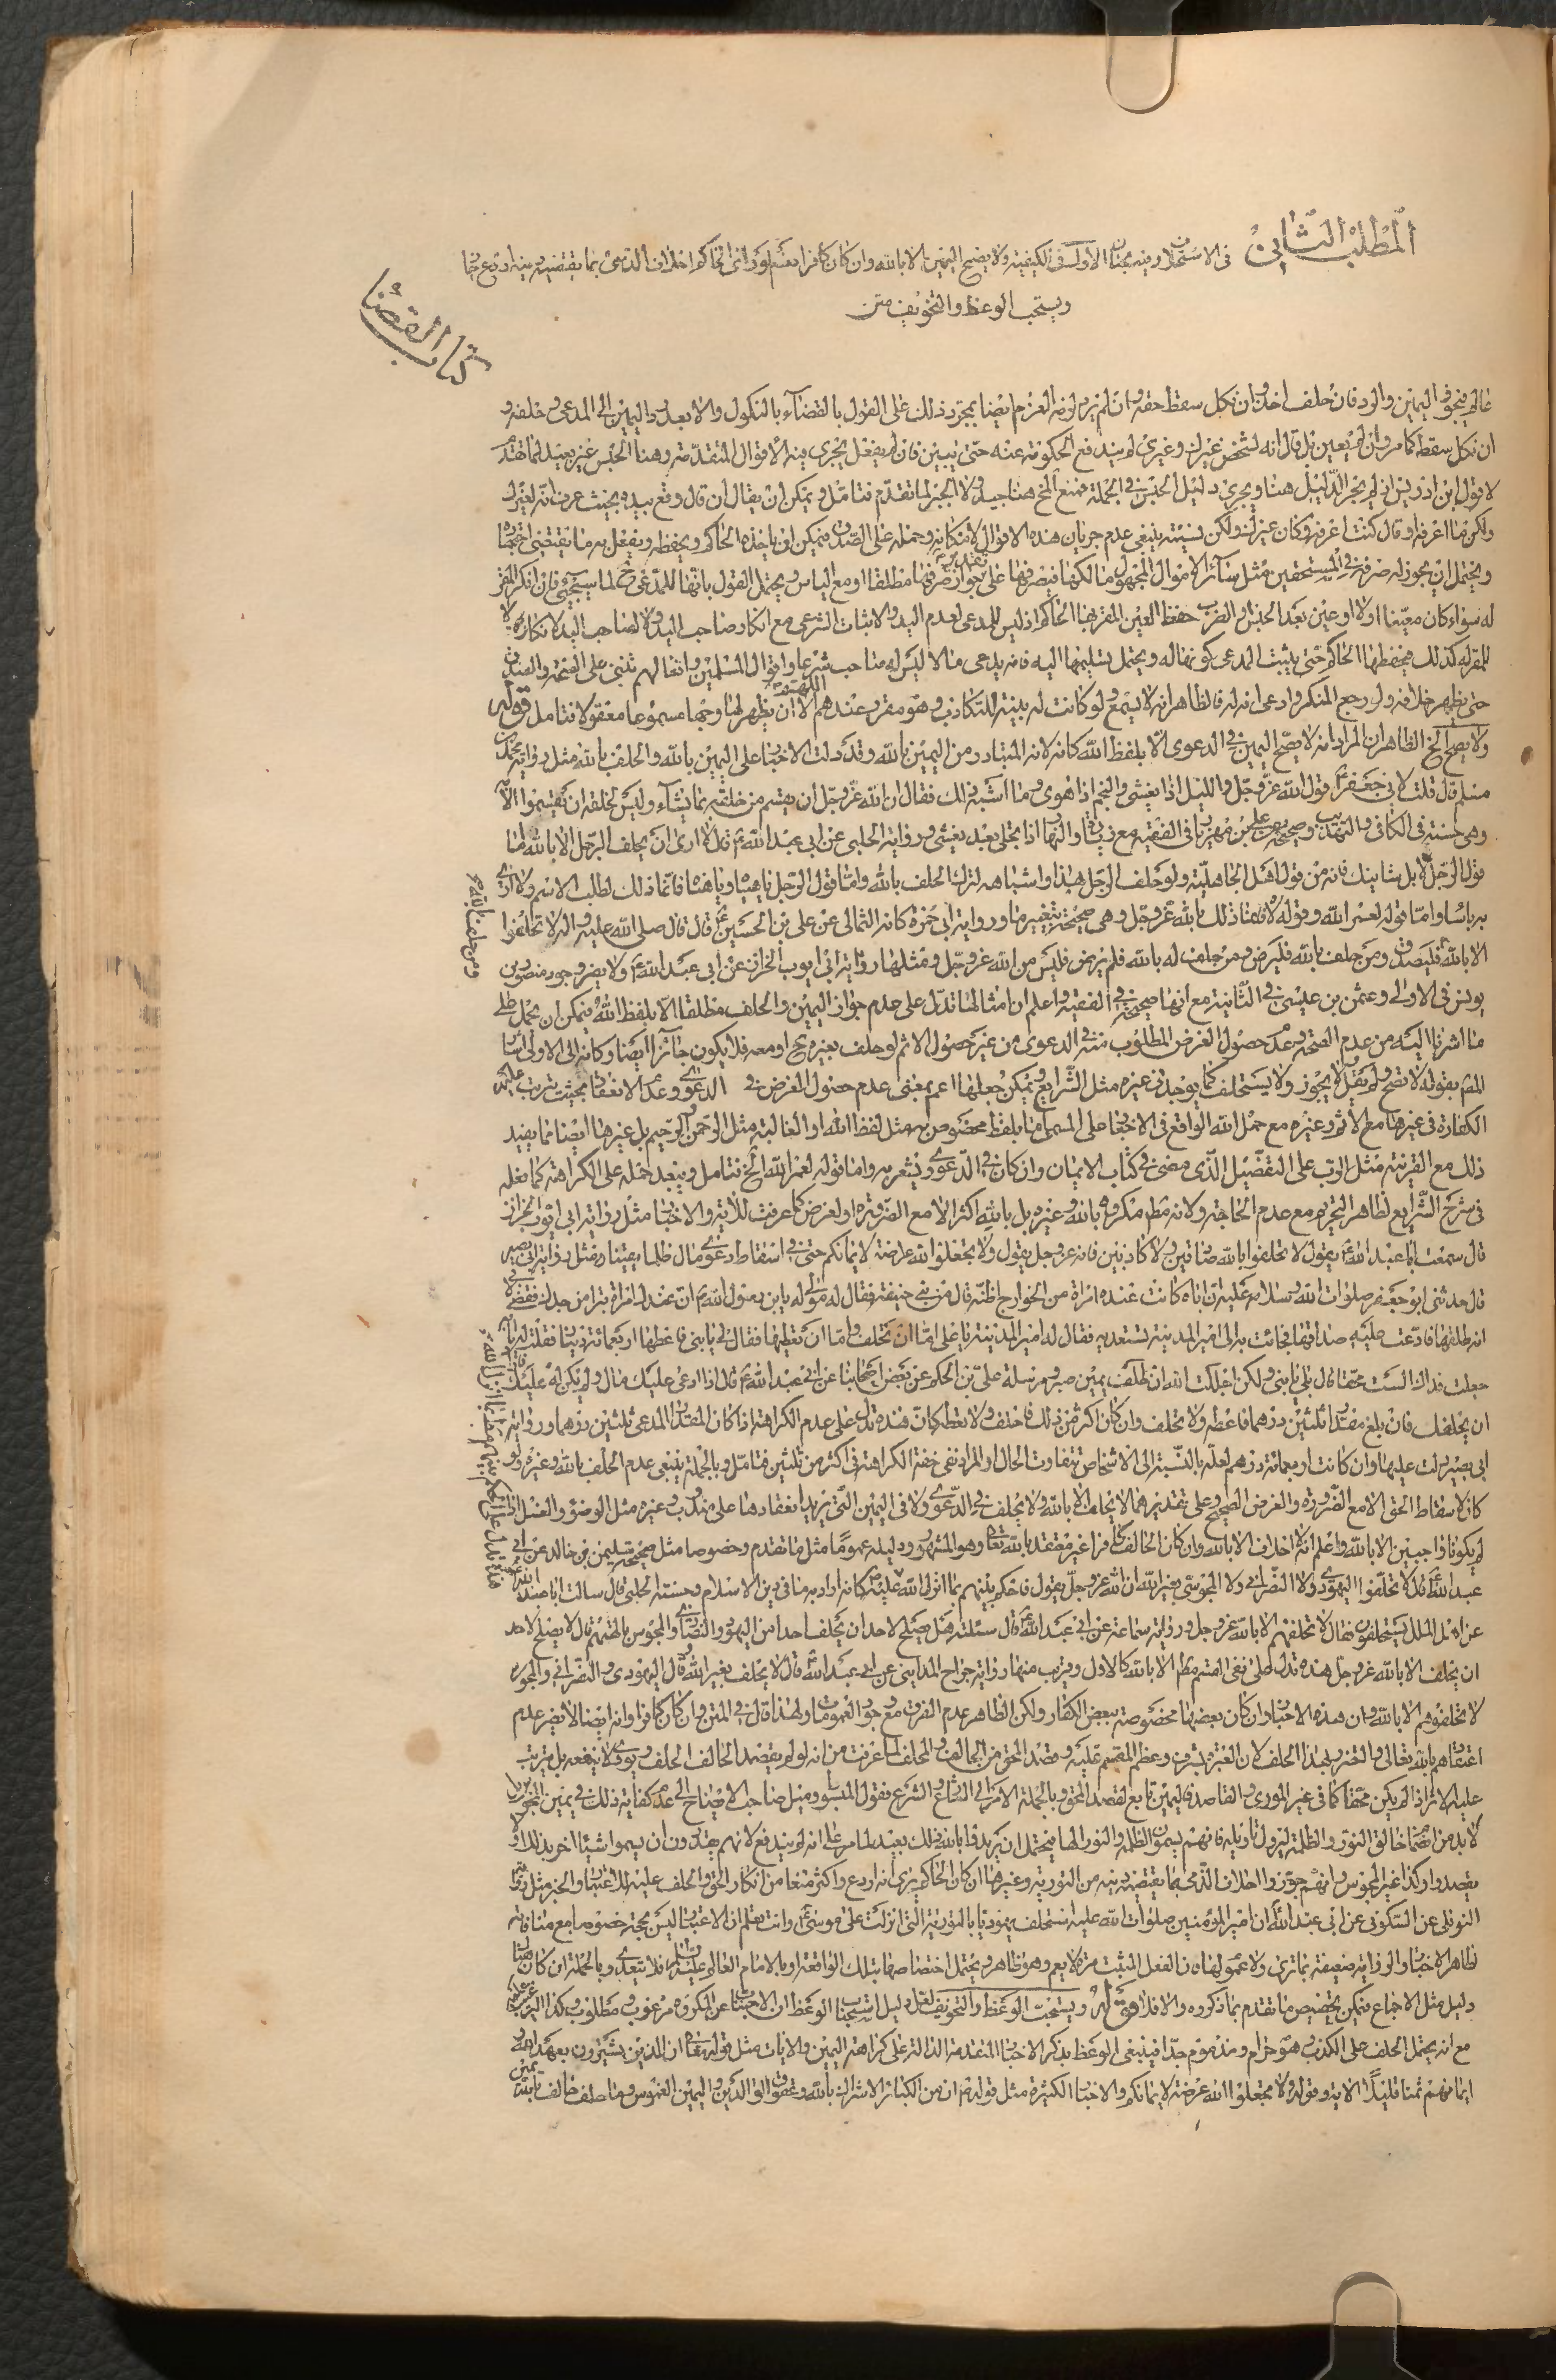 المطلب الثاني في الاستحلاف وفيه بحثان الاول في الكيفية ولا يصح اليمين الا بالله وان كان كافرا نعم لو راى الحاكم احلاف الذمي بما يقتضيه دينه اردع جاز
ويستحب الوعظ والتخويف متن
كتاب القضا
اليمين والرد فان حلف اخذ وان نكل سقط حقه وان لم يرد لزمه الغرم ايضا بمجرد ذلك على القول بالقضاء بالنكول والا بعد رد اليمين الى المدعي وحلفه و
ان نكل سقط كما مر وان لم يعين بل قال انه لشخص غيرك وغيري لم يندفع الحكومة عنه حتى يبين فان لم يفعل يجري فيه الاقوال المتقدمة وهنا الحبس غير بعيد لما تقدم
لا قول ابن ادريس اذ لم يجر الدليل هنا ويجري دليل الحبس في الجملة فمنع الشيخ هنا جيد ولا الجبر لما تقدم فتامل ويمكن ان يقال ان قال وقع بيدي بحيث عرف انه لغيرك
ولكن ما اعرفه او قال كنت اعرفه وكان غيرك ولكن نسيته ينبغي عدم جريان هذه الاقوال لامكانه وحمله على الصدق فيمكن ان ياخذه الحاكم ويحفظه ويفعل به ما يقتضي
ويحتمل ان يجوز له صرفه في المستحقين مثل سائر الاموال المجهول مالكها فيصرفها على تقدير جواز صرفها مطلقا او مع الياس ويحتمل القول بانها للمدعي ح لما سيجيئ فان انكر المقر
له سواء كان معينا اولا او عين بعد الحبس والضرب حفظ العين المقر بها الحاكم اذ ليس للمدعي لعدم اليد ولا اثبات الشرعي مع انكار صاحب اليد ولا لصاحب اليد لانكاره ولا
للمقر له كذلك فيحفظها الحاكم حتى يثبت المدعي كونها له ويحتمل تسليمها اليه فانه يدعي مالا ليس له صاحب شرعا واقوال المسلمين وافعالهم تبنى على الصحة والصدق
حتى يظهر خلافه ولو رجع المنكر وادعى انه له فالظاهر انه لا يسمع ولو كانت له بينة للتكاذب وهو مقرر عندهم اللهم الا ان يظهر لها وجها مسموعا معقولا فتامل قوله
ولا يصح الخ الظاهر ان المراد انه لا يصح اليمين في الدعوى الا بلفظ الله كانه لانه المتبادر من اليمين بالله وقد دلت الاخبار على اليمين بالله والحلف بالله مثل رواية محمد بن
مسلم قال قلت لابي جعفر ع قول الله عز وجل والليل اذا يغشى والنجم اذا هوى وما اشبه ذلك فقال ان الله عز وجل ان يقسم من خلقه بما يشاء وليس لخلقه ان يقسموا الا به
وهي حسنة في الكافي والتهذيب وصحيحة علي بن مهزيار في الفقيه مع زيادة والنهار اذا تجلى بعد يغشى ورواية الحلبي عن ابي عبد الله ع قال لا ارى ان يحلف الرجل الا بالله اما
قول الرجل لا بل شانيك فانه من قول اهل الجاهلية ولو حلف الرجل بهذا واشباهه لترك الحلف بالله واما قول الرجل يا هياه ويا هناه فانما ذلك لطلب الاسم ولا ارى
به باسا واما قوله لعمر الله وقوله لاها الله فانما ذلك بالله عز وجل وهي صحيحة بتغيير ما ورواية ابي حمزة كانه الثمالي عن علي بن الحسين ع قال قال صلى الله عليه واله لا تحلفوا
الا بالله فليصدق ومن حلف بالله فليرض ومن حلف له بالله فلم يرض فليس من الله عز وجل ومثلها رواية ابي ايوب الخزاز عن ابي عبد الله ع ولا يضر وجود منصور بن
يونس في الاولى وعثمن بن عيسى في الثانية مع انها صحيحة في الفقيه واعلم ان امثالها تدل على عدم جواز اليمين والحلف مطلقا الا بلفظ الله فيمكن ان يحمل على
ما اشرنا اليه من عدم الصحة وعدم حصول الغرض المطلوب منه في الدعوى من غير حصول الاثم لو حلف بغيره ح او معه فلا يكون جائزا ايضا وكانه الى الاولى اشار
المص بقوله لا تصح ولم يقل لا يجوز ولا يستحلف كما يوجد في غيره مثل الشرايع ويمكن جعلها اعم بمعنى عدم حصول الغرض في الدعوى وعدم الانعقاد بحيث يترتب عليه
الكفارة في غيرها مع الاثم وغيره مع حمل الله الواقع في الاخبار على المسمى لا بلفظ مخصوص به مثل لفظ الله او الغالبة مثل الرحمن الرحيم بل غيرها ايضا مما يفيد
ذلك مع القرينة مثل الرب على التفصيل الذي مضى في كتاب الايمان وان كان في الدعوى ويشعر به واما قوله لعمر الله الخ فتامل ويبعد حمله على الكراهة كما فعله
في شرح الشرايع لظاهر التحريم مع عدم الحاجة ولانه مط مكروه بالله وغيره بل بالله اكثر الا مع الضرورة او لغرض كما عرفت للاية والاخبار مثل رواية ابي ايوب الخزاز
قال سمعت ابا عبد الله ع يقول لا تحلفوا بالله صادقين ولا كاذبين فانه عز وجل يقول ولا تجعلوا الله عرضة لايمانكم حتى في اسقاط دعوى مال ظلما يعتبارضا مثل رواية ابي بصير
قال حدثني ابو جعفر صلوات الله وسلامه عليه ان اباه كانت عنده امراة من الخوارج اظنه قال من بني حنيفة فقال له مولى له يا ابن رسول الله ع ان عندك امراة تتبرا من جدك فقضي لابي
انه طلقها فادعت عليه صداقها فجائت به الى امير المدينة تستعديه فقال له امير المدينة يا علي اما ان تحلف واما ان تعطيها فقال لي يا بني قم فاعطها اربعمائة دينار فقلت له يا ابه
جعلت فداك الست محقا قال بلى يا بني ولكن اجللت الله ان احلف يمين صبر ومرسلة علي بن الحكم عن بعض اصحابنا عن ابي عبد الله ع قال اذا ادعى عليك مال ولم يكن له عليك
ان يحلفك فان بلغ مقدار ثلثين درهما فاعطه ولا تحلف وان كان اكثر من ذلك فاحلف ولا تعطه كان هذه تدل على عدم الكراهة اذا كان المقدار المدعى ثلثين درهما ورواية
ابي بصير دلت عليها وان كانت اربعمائة درهم لعله بالنسبة الى الاشخاص تتفاوت الحال او المراد نفي خفة الكراهة في اكثر من ثلثين فتامل وبالجملة ينبغي عدم الحلف بالله وغيره ولو
كان لاسقاط الحق الا مع الضرورة والغرض الصحيح وعلى تقديرهما لا يحلف الا بالله ولا يحلف في الدعوى ولا في اليمين التي يريد انعقادها على مندوب وغيره مثل الوضوء والغسل اذا
لم يكونا واجبين الا بالله واعلم انه لا احلاف الا بالله وان كان الحالف كافرا غير معتقد بالله تعالى وهو المشهور ودليله عموما مثل ما تقدم وخصوصا مثل صحيحة سليمن بن خالد عن ابي
عبد الله ع قال لا تحلفوا اليهودي ولا النصراني ولا المجوسي بغير الله ان الله عز وجل يقول فاحكم بينهم بما انزل الله عليه كانه اراد به ما في دين الاسلام وحسنة الحلبي قال سالت ابا عبد الله ع
عن اهل الملل يستحلفون فقال لا تحلفهم الا بالله عز وجل ورواية سماعة عن ابي عبد الله ع قال سئلته هل يصلح لاحد ان يحلف احدا من اليهود والنصارى والمجوس بالهتهم قال لا يصلح لاحد
ان يحلف الا بالله عز وجل هذه تدل على نفي القسم مط الا بالله كالاول وقريب منها رواية جراح المدايني عن ابي عبد الله ع قال لا يحلف بغير الله وقال اليهودي والنصراني والمجوس
لا تحلفوهم الا بالله ان هذه الاخبار وان كان بعضها مخصوصة ببعض الكفار ولكن الظاهر عدم الفرق مع وجود العمومات ولهذا قال في المتن وان كان كافرا وانه ايضا لا يضر عدم
اعتقادهم بالله تعالى والضرر بهذا الحلف لان العبرة بشرف وعظم المقسم عليه وقصد المحق من الحالف والمحلف لما عرفت من انه لو لم يقصد الحالف الحلف ويوري لا ينفعه بل يترتب
عليه الاثر اذا لم يكن محقا كما في غير الموري والقاصد فاليمين تابع لقصد المحق وبالجملة الامر الى الشارع والشرع فقول المبسوط وميل صاحب الايضاح الى عدم كفاية ذلك في يمين المجوس بل
لا بد من انضمام خالق النور والظلمة ليزول تاويله فانهم يسمون الظلمة والنور الها فيحتمل ان يريدوا بالله ذلك بعيد لما مر على انه لو يندفع لانهم يقدرون ان يسموا شيئا اخر بذلك او
يقصدوا وكذا غير المجوس وانهم جوزوا احلاف الذمي بما يقتضيه دينه من التورية وغيرها ان كان الحاكم يرى انه اردع واكثر منعا من انكار الحق والحلف عليه للاعتبار والخبر مثل رواية
النوفلي عن السكوني عن ابي عبد الله ع ان امير المؤمنين صلوات الله عليه استحلف يهوديا بالتورية التي انزلت على موسى ع وانت تعلم ان الاعتبار ليس بحجة خصوصا مع منافاته
ظاهر الاخبار والرواية ضعيفة بما ترى ولا عموم لها فان الفعل المثبت مرة لا يعم وهو ظاهر ويحتمل اختصاصها بتلك الواقعة او بالامام العالم عليه السلم فلا يتعدى وبالجملة ان كان هنا
دليل مثل الاجماع فيمكن تخصيص ما تقدم بما ذكروه والا فلا قوله ويستحب الوعظ والتخويف لعل دليل استحباب الوعظ ان الاجتناب عن المكروه مرغوب ومطلوب وكذا الترغيب
مع انه يحتمل الحلف على الكذب هو حرام ومذموم جدا فينبغي الوعظ بذكر الاخبار المتقدمة الدالة على كراهة اليمين والايات مثل قوله تعالى ان الذين يشترون بعهد الله و
ايمانهم ثمنا قليلا الاية وقوله ولا تجعلوا الله عرضة لايمانكم والاخبار الكثيرة مثل قوله ع ان من الكبائر الاشراك بالله وعقوق الوالدين واليمين الغموس وما حلف حالف بالله
يمين
ومن حلف بالله